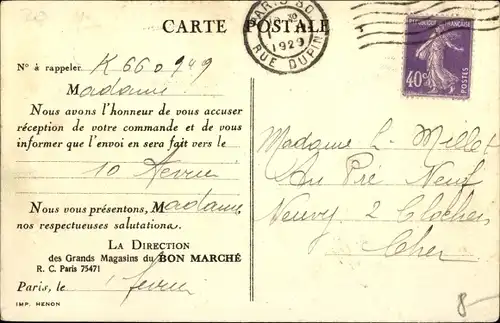 CARTE POSTALE
PARIS 80
1929
RUE DUPIN
RÉPUBLIQUE FRANÇAISE
40c
POSTES
N° à rappeler K 660949
Madame
Nous avons l'honneur de vous accuser
réception de votre commande et de vous
informer que l'envoi en sera fait vers le
10 Février
Nous vous présentons, Madame,
nos respectueuses salutations.
LA DIRECTION
des Grands Magasins du BON MARCHÉ
R. C. Paris 75471
Paris, le février
IMP. HENON
Madame L. Millet
Au Pré Neuf
Neuvy 2 Clochers
Cher
8